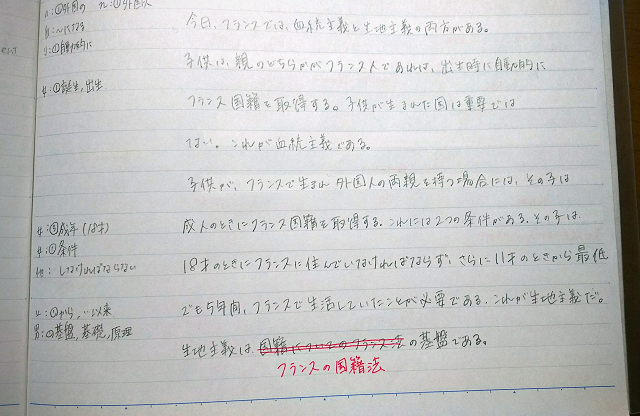 n:①外国の n:①外国人
今日、フランスでは、血統主義と生地主義の両方がある。
②自動的に
子供は、親のどちらかがフランス人であれば、出生時に自動的に
①誕生, 出生
フランス国籍を取得する。子供が生まれた国は重要では
ない。これが血統主義である。
子供が、フランスで生まれ外国人の両親を持つ場合には、その子は
成年 (18才)
成人のときにフランス国籍を取得する。これには2つの条件がある。その子は
①条件
18才のときにフランスに住んでいなければならず、さらに11才のときから最低
他: しなければならない
でも5年間、フランスで生活していたことが必要である。これが生地主義だ。
①から, …以来
男:の基盤, 基礎, 原理
生地主義は 国籍についてのフランス法 の基盤である。
フランスの国籍法